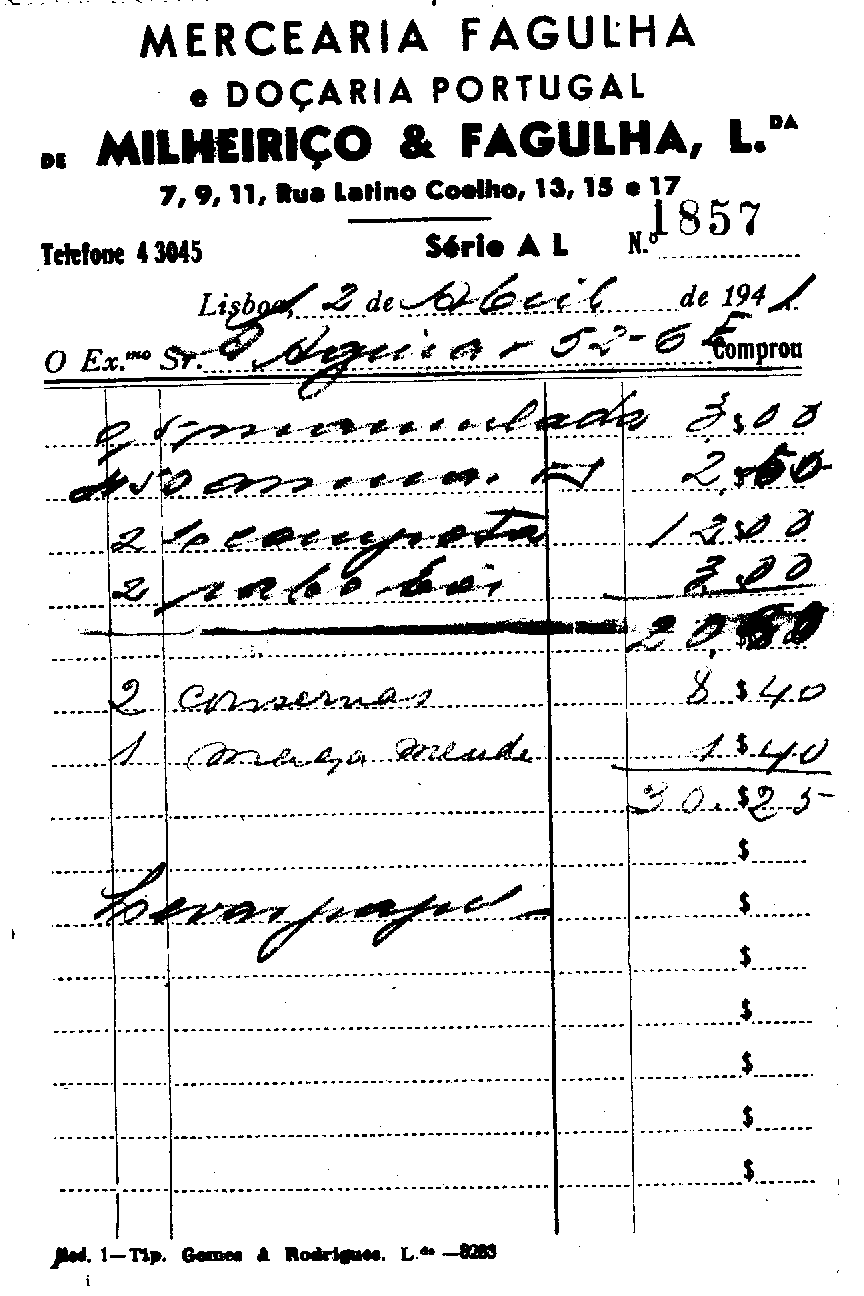 MERCEARIA FAGULHA
e DOÇARIA PORTUGAL
DE MILHEIRIÇO & FAGULHA, L.DA
7, 9, 11, Rua Latino Coelho, 13, 15 e 17
Telefone 4 3045 Série A L N.º 1857
Lisboa, 2 de Abril de 1941
O Ex.mo Sr. Aguiar 52-6 E Comprou
marmelada 3$00
2
2 compota 12$00
2 3.00
20,
2 conservas 8 $ 40
1 1 $ 40
30.$25
$
Levar $
$
$
$
$
$
Mod. 1—Tip. Gomes & Rodrigues. L.da —8283